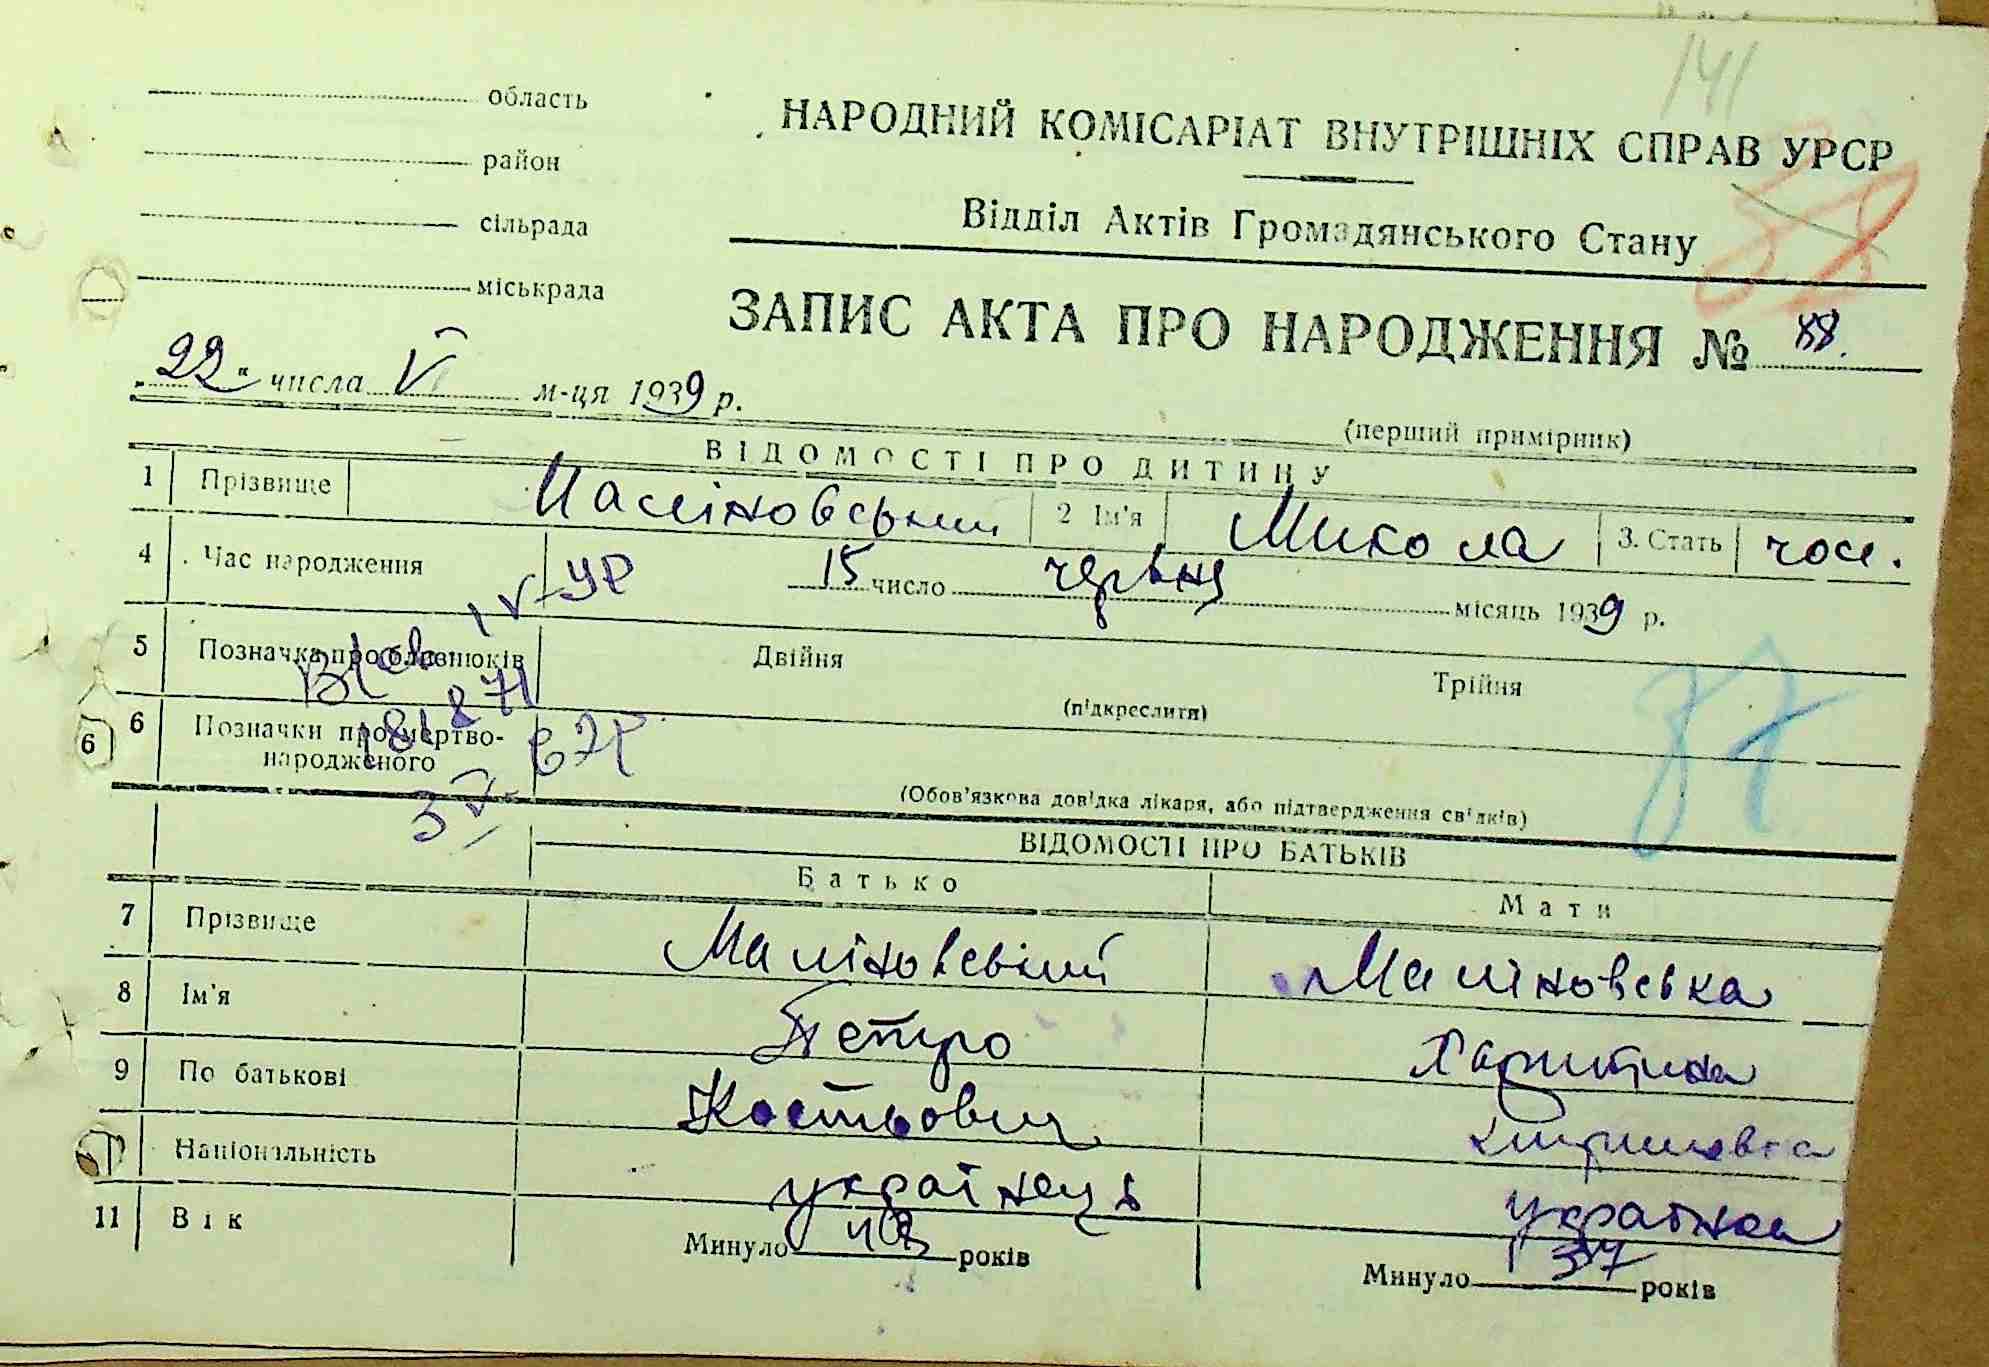 141
область
район
сільрада
міськрада
НАРОДНИЙ КОМІСАРІАТ ВНУТРІШНІХ СПРАВ УРСР
Відділ Актів Громадянського Стану
ЗАПИС АКТА ПРО НАРОДЖЕННЯ № 88.
„22" числа VI м-ця 1939 р.
(перший примірник)
ВІДОМОСТІ ПРО ДИТИНУ
1 Прізвище Маліновський 2 Ім'я Микола 3. Стать чол.
4 Час народження 15 число червня місяць 1939 р.
5 Позначка про близнюків Двійня Трійня
(підкреслити)
6 Позначки про мертвонародженого
(Обов'язкова довідка лікаря, або підтвердження свідків)
87
ВІДОМОСТІ ПРО БАТЬКІВ
Батько Мати
7 Прізвище Маліновський Маліновська
8 Ім'я Петро Харитина
9 По батькові Костьович
Національність українець українка
11 Вік Минуло років Минуло 37 років
6